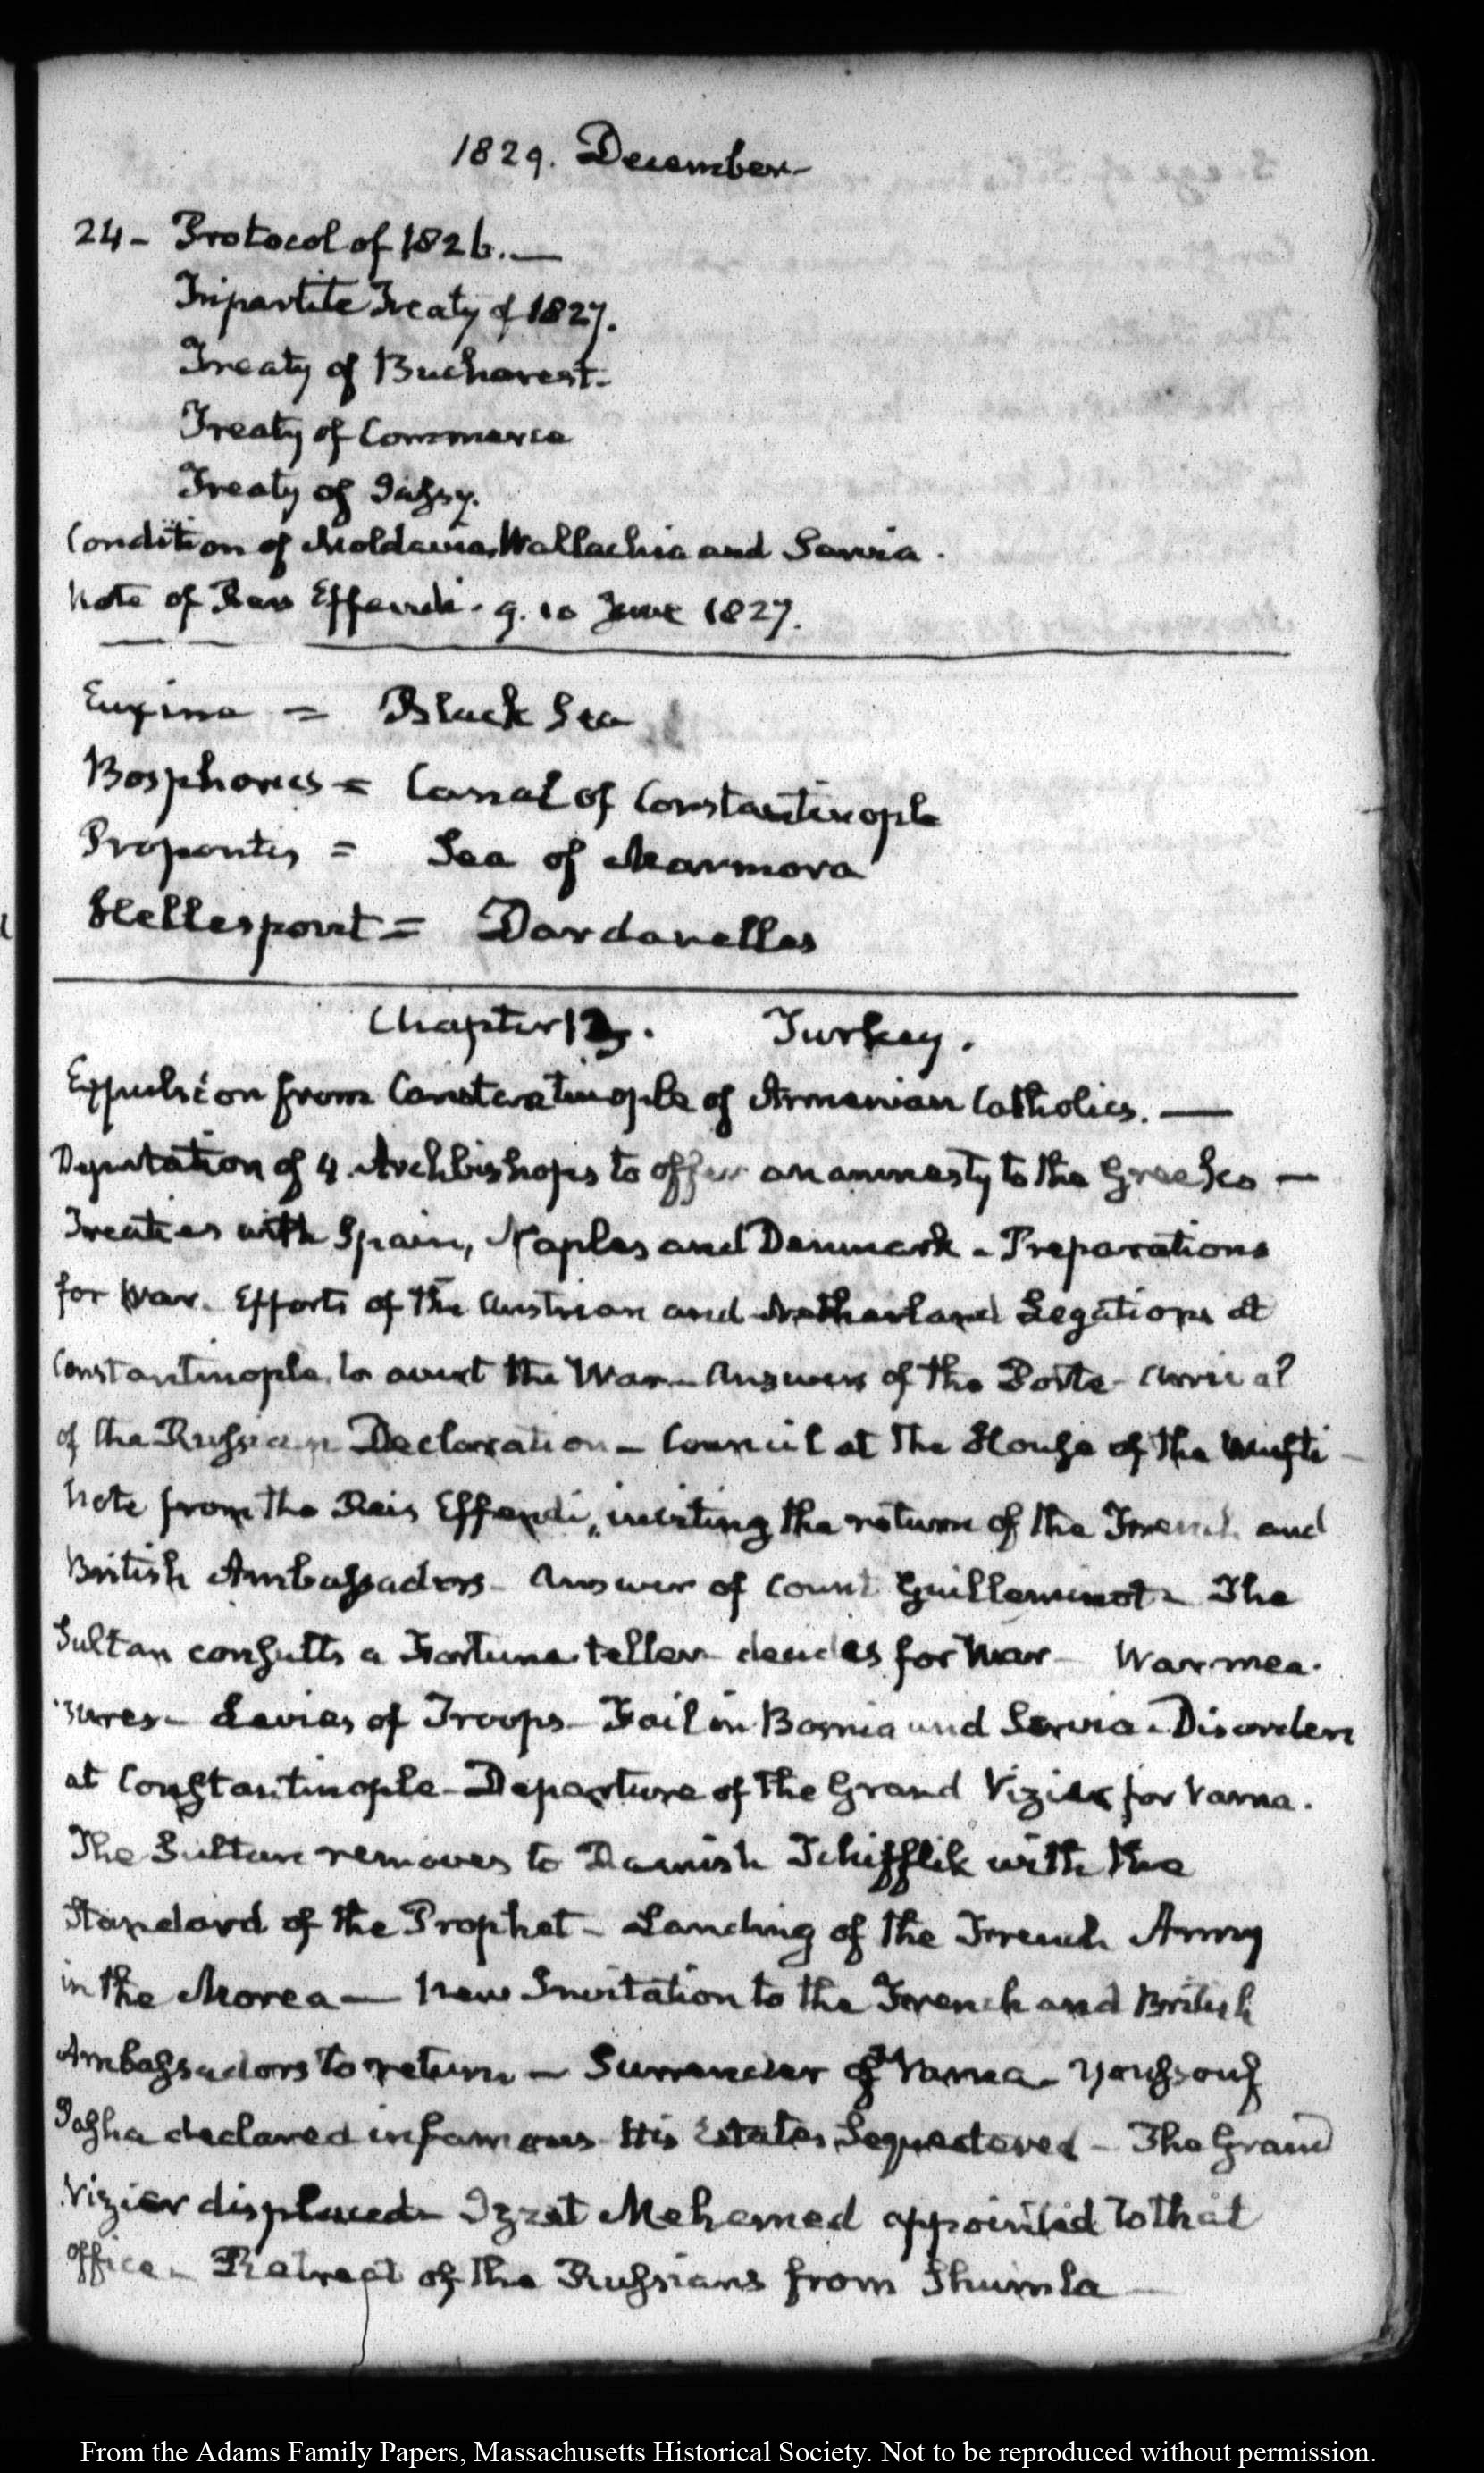 1829. December
24- Protocol of 1826.—
Tripartite Treaty of 1827.
Treaty of Bucharest-
Treaty of Commerce
Treaty of Jassy.
Condition of Moldavia, Wallachia and Servia.
Note of Reis Effendi. 9. 10 June 1827.
Euxine = Black Sea
Bosphorus = Canal of Constantinople
Propontis = Sea of Marmora
Hellespont = Dardanelles
Chapter 13. Turkey.
Expulsion from Constantinople of Armenian Catholics.—
Deputation of 4 Archbishops to offer an amnesty to the Greeks—
Treaties with Spain, Naples and Denmark - Preparations
for War. Efforts of the Austrian and Netherland Legations at
Constantinople to avert the War - Answers of the Porte - Arrival
of the Russian Declaration - Council at the House of the Mufti -
Note from the Reis Effendi, inviting the return of the French and
British Ambassadors - Answer of Count Guilleminot - The
Sultan consults a Fortune teller - decides for War - War mea-
sures - Levies of Troops - Fail in Bosnia and Servia - Disorders
at Constantinople - Departure of the Grand Vizier for Varna.
The Sultan removes to Ramish Tchifflik with the
Standard of the Prophet - Landing of the French Army
in the Morea — New Invitation to the French and British
Ambassadors to return — Surrender of Varna - Youssouf
Pasha declared infamous - His Estates Sequestered - The Grand
Vizier displaced - Izzet Mehemed appointed to that
office - Retreat of the Russians from Shumla —
From the Adams Family Papers, Massachusetts Historical Society. Not to be reproduced without permission.